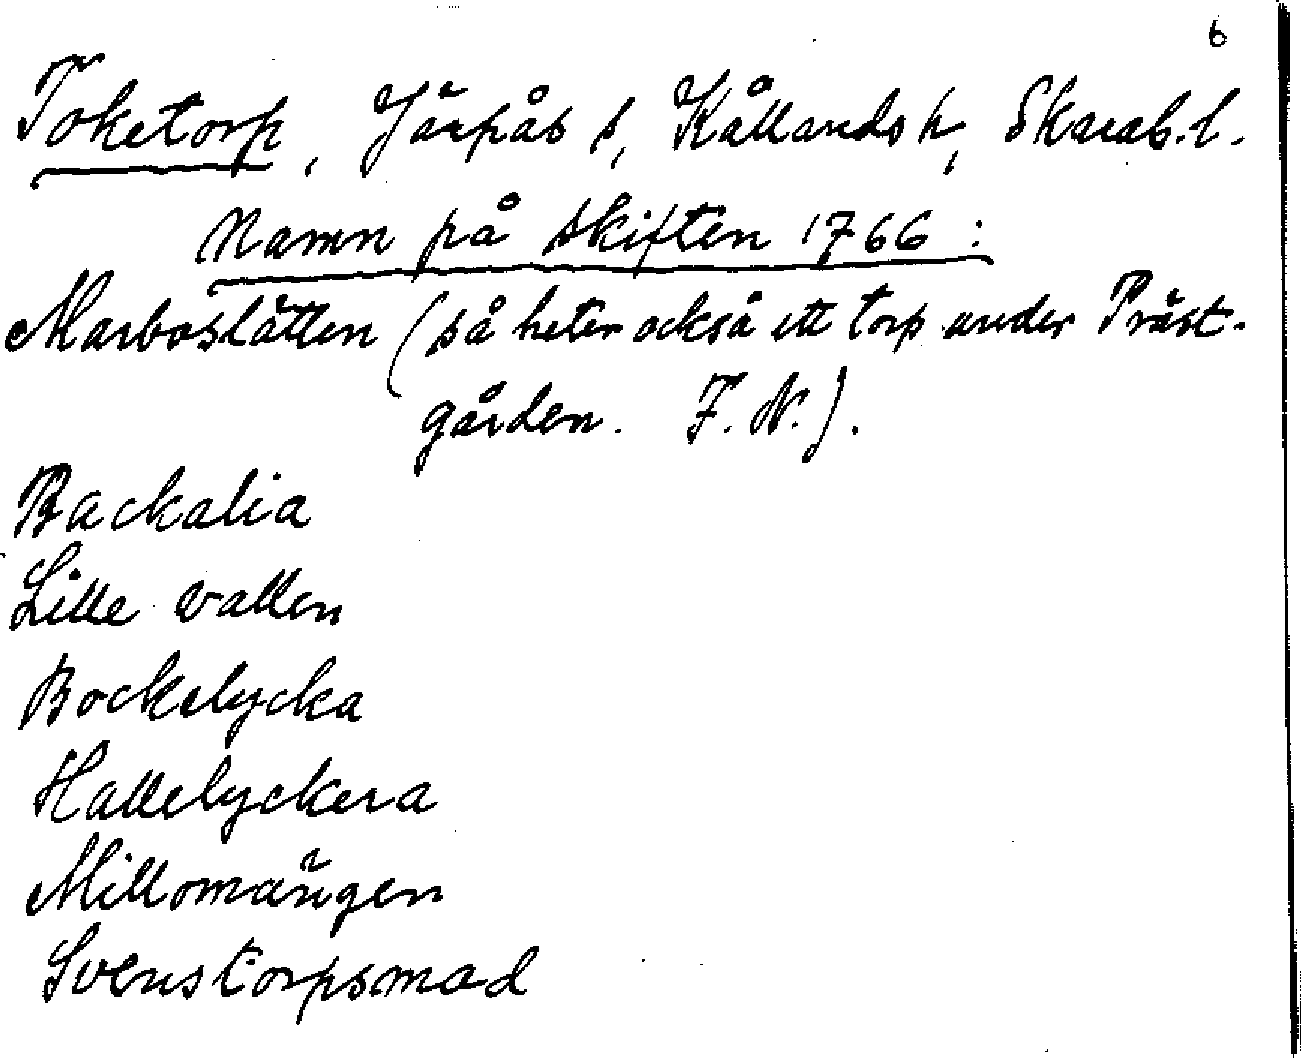 6
Toketorp, Järpås s, Kållands h, Skarab.l.
Namn på skiften 1766:
Marboslätten (så heter också ett torp under Präst-
gården. F.N.).
Backalia
Lille vallen
Bockelycka
Hallelyckera
Millomängen
Svenstorpsmad